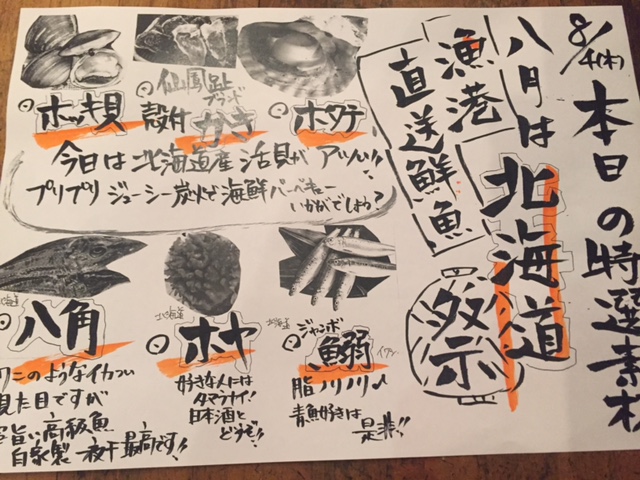 8/4(木)
本日の特選素材
八月は北海道
祭
漁港
直送鮮魚
ホタテ
仙鳳趾
ブランド
殻付かき
ホッキ貝
今日は北海道産活貝がアツい!!
プリプリジューシー炭火で海鮮バーベキュー
いかがでしょう?
北海道
ジャンボ
鰯
イワシ
脂ノリノリ
青魚好きは
是非!!
北海道
ホヤ
好きな人には
タマラナイ!
日本酒と
どうぞ!!
北海道
八角
ワニのようなイカつい
見た目ですが
超旨い高級魚
自家製一夜干最高です!!